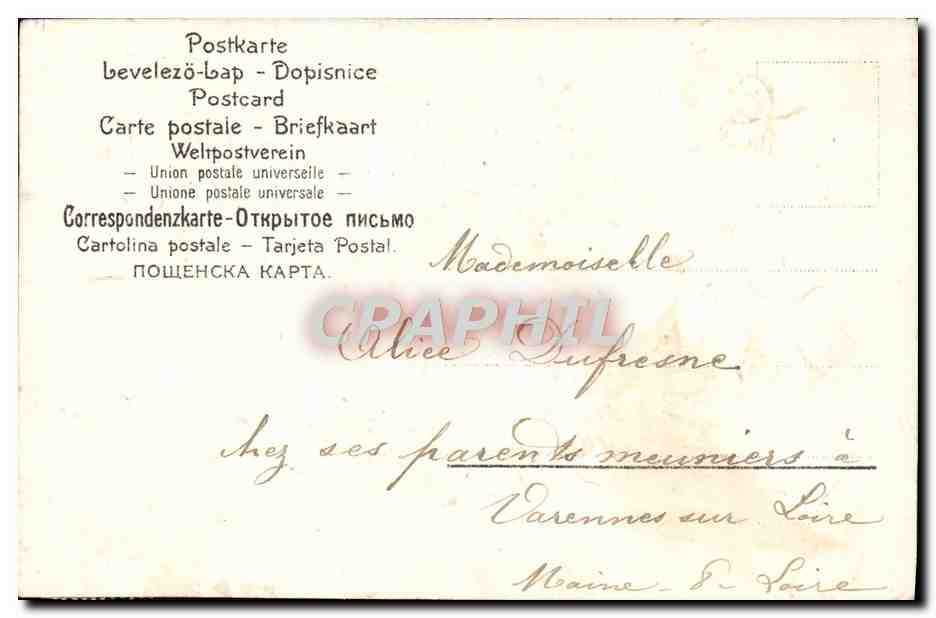 Postkarte
Levelező-Lap - Dopisnice
Postcard
Carte postale - Briefkaart
Weltpostverein
— Union postale universelle —
— Unione postale universale —
Correspondenzkarte - Открытое письмо
Cartolina postale - Tarjeta Postal.
ПОЩЕНСКА КАРТА.
Mademoiselle
CPAPHIL
Alice Dufresne
chez ses parents meuniers à
Varennes sur Loire
Maine-&-Loire